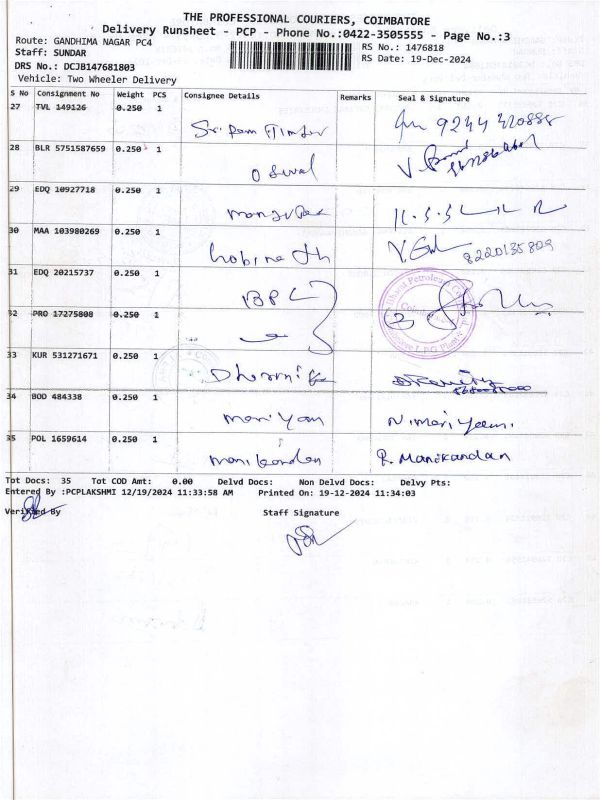 THE PROFESSIONAL COURIERS, COIMBATORE
Delivery Runsheet - PCP - Phone No.:0422-3505555 - Page No.:3
Route: GANDHIMA NAGAR PC4 RS No.: 1476818
Staff: SUNDAR RS Date: 19-Dec-2024
DRS No.: DCJB147681803
Vehicle: Two Wheeler Delivery
S No Consignment No Weight PCS Consignee Details Remarks Seal & Signature
27 TVL 149126 0.250 1 Sri Ram 9244420888
28 BLR 5751587659 0.250 1
29 EDQ 10927718 0.250 1
30 MAA 103980269 0.250 1 8220135809
31 EDQ 20215737 0.250 1 BPC
32 PRO 17275808 0.250 1
33 KUR 531271671 0.250 1
34 BOD 484338 0.250 1 Mariyam
35 POL 1659614 0.250 1 Manikandan R. Manikandan
Tot Docs: 35 Tot COD Amt: 0.00 Delvd Docs: Non Delvd Docs: Delvy Pts:
Entered By :PCPLAKSHMI 12/19/2024 11:33:58 AM Printed On: 19-12-2024 11:34:03
Verified By Staff Signature